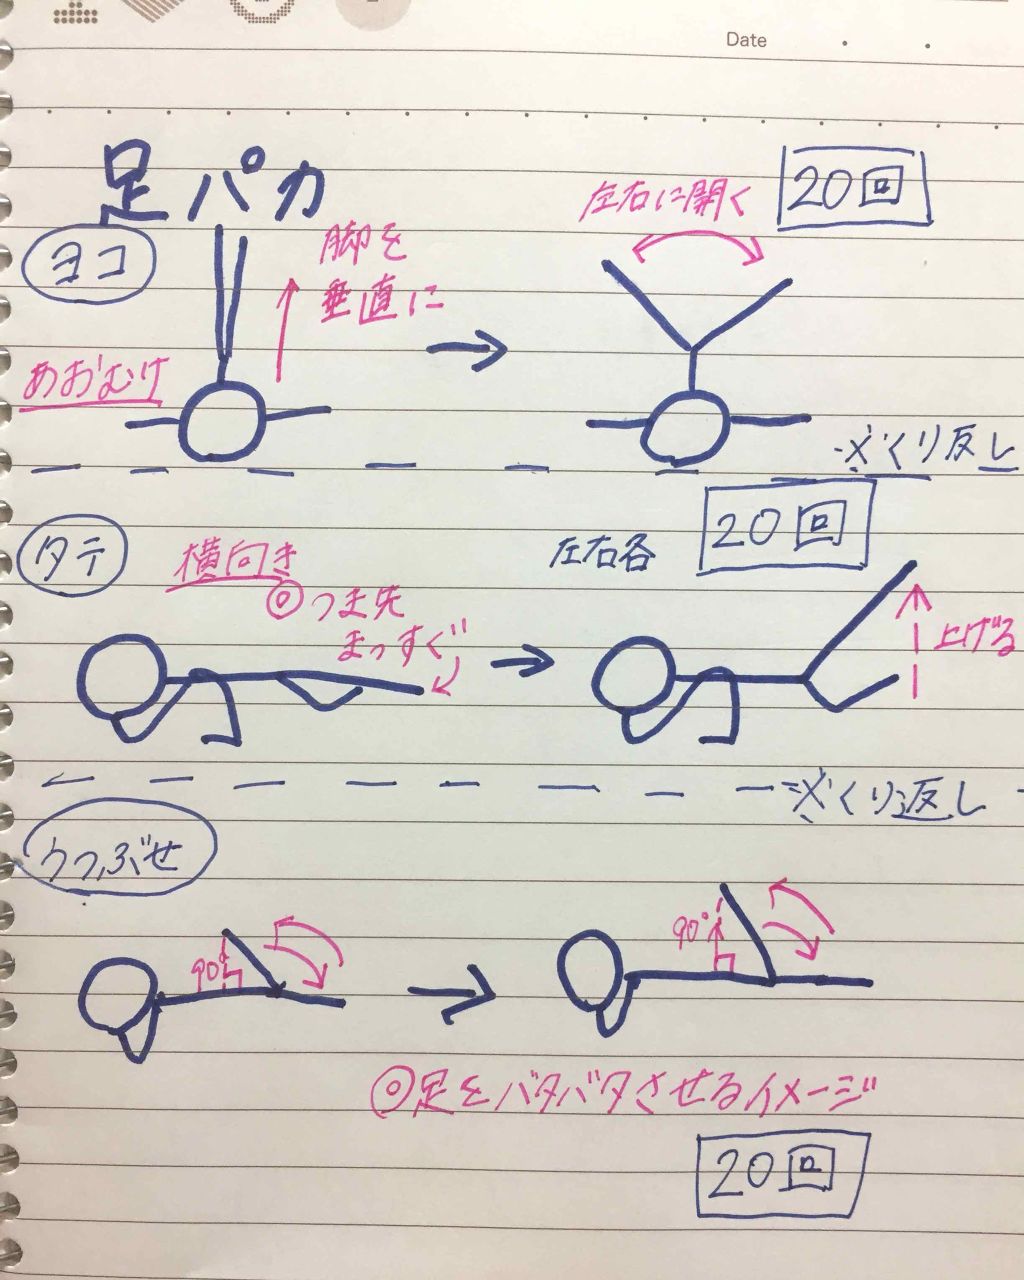 Date
足パカ
ヨコ
あおむけ
脚を
垂直に
左右に開く
20回
※くり返し
タテ
横向き
◎つま先
まっすぐ
左右各
20回
上げる
※くり返し
うつぶせ
90°
90°
◎足をバタバタさせるイメージ
20回